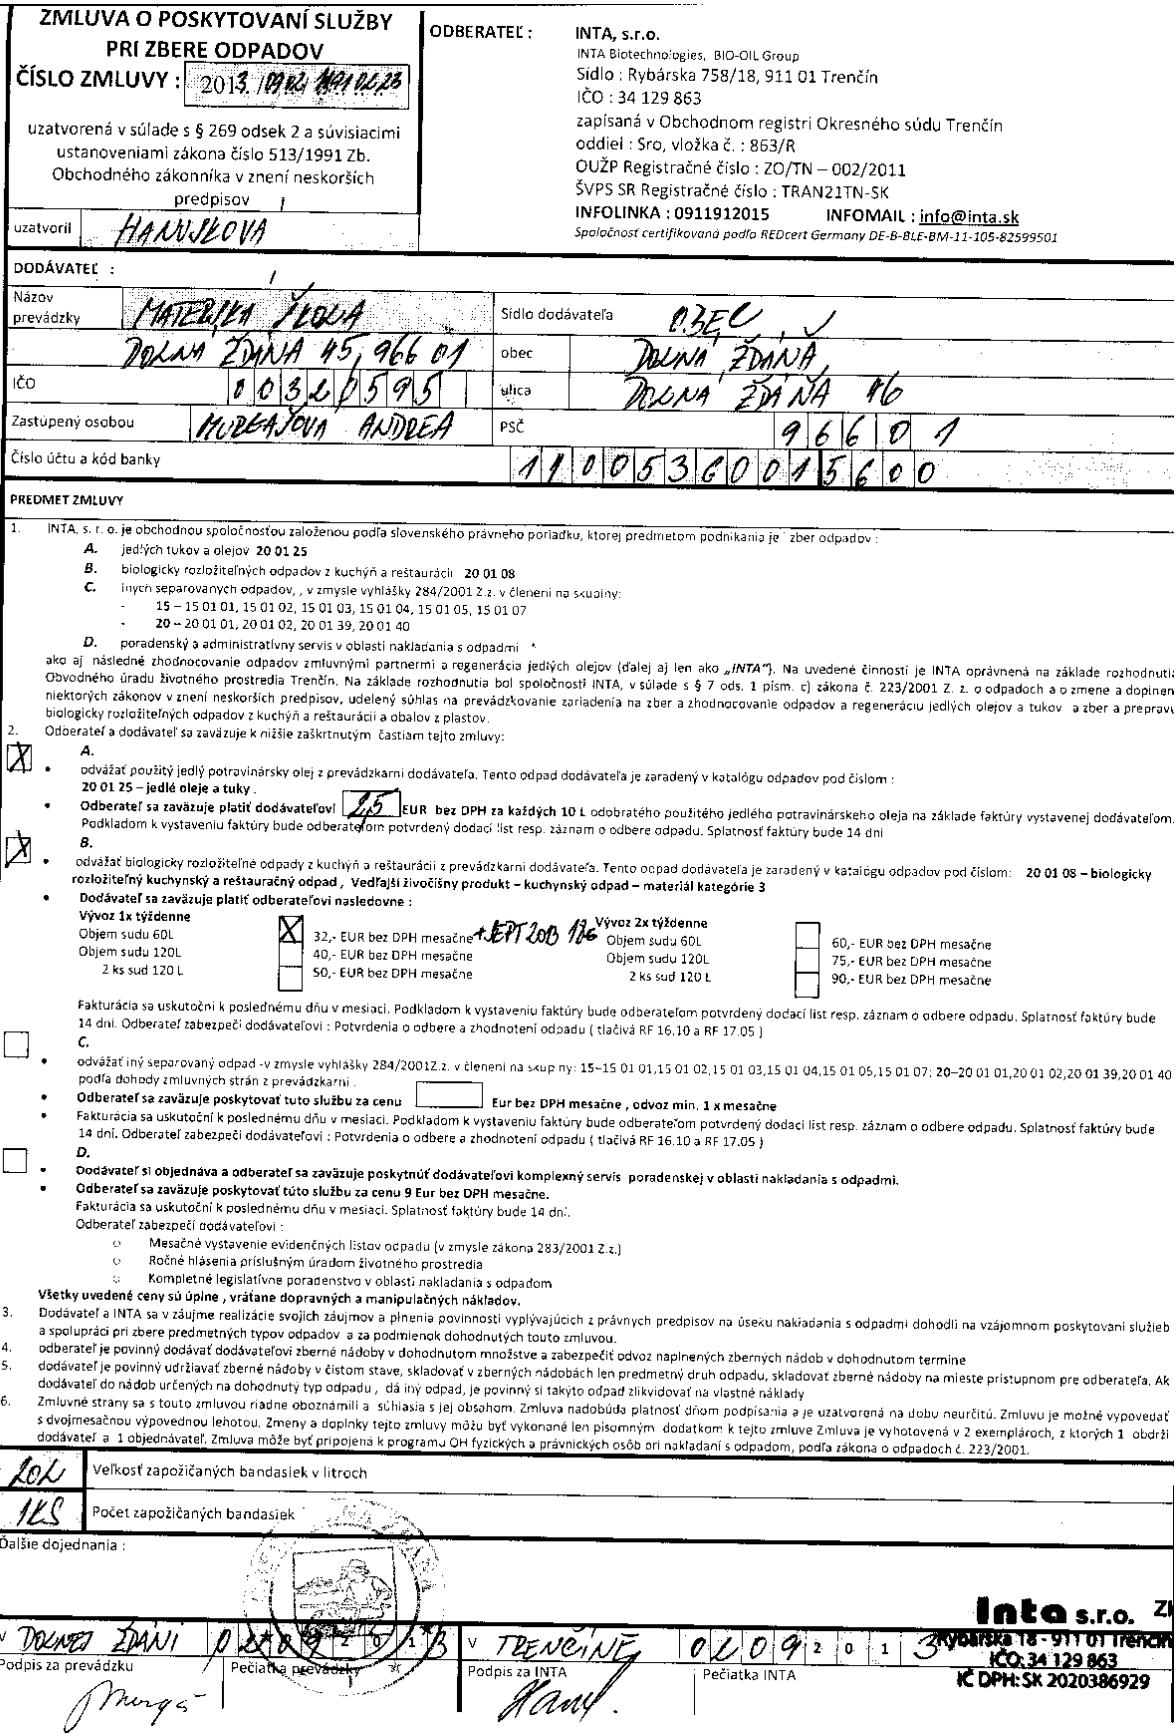 ZMLUVA O POSKYTOVANÍ SLUŽBY
PRI ZBERE ODPADOV
ČÍSLO ZMLUVY : 2013
uzatvorená v súlade s § 269 odsek 2 a súvisiacimi
ustanoveniami zákona číslo 513/1991 Zb.
Obchodného zákonníka v znení neskorších
predpisov
uzatvoril HANUSKOVA
ODBERATEĽ :
INTA, s.r.o.
INTA Biotechnologies, BIO-OIL Group
Sídlo : Rybárska 758/18, 911 01 Trenčín
IČO : 34 129 863
zapísaná v Obchodnom registri Okresného súdu Trenčín
oddiel : Sro, vložka č. : 863/R
OUŽP Registračné číslo : ZO/TN – 002/2011
ŠVPS SR Registračné číslo : TRAN21TN-SK
INFOLINKA : 0911912015 INFOMAIL : info@inta.sk
Spoločnosť certifikovaná podľa REDcert Germany DE-B-BLE-BM-11-105-82599501
DODÁVATEĽ :
Názov prevádzky MATERSKÁ ŠKOLA Sídlo dodávateľa OBEC
DOLNÁ ŽDÁŇA 45, 966 01 obec DOLNÁ ŽDÁŇA,
IČO 00320595 ulica DOLNÁ ŽDÁŇA 46
Zastúpený osobou MURGAŠOVA ANDREA PSČ 96601
Číslo účtu a kód banky 11005360015600
PREDMET ZMLUVY
1. INTA, s. r. o. je obchodnou spoločnosťou založenou podľa slovenského právneho poriadku, ktorej predmetom podnikania je zber odpadov :
A. jedlých tukov a olejov 20 01 25
B. biologicky rozložiteľných odpadov z kuchýň a reštaurácii 20 01 08
C. iných separovaných odpadov, , v zmysle vyhlášky 284/2001 Z.z. v členení na skupiny:
- 15 – 15 01 01, 15 01 02, 15 01 03, 15 01 04, 15 01 05, 15 01 07
- 20 – 20 01 01, 20 01 02, 20 01 39, 20 01 40
D. poradenský a administratívny servis v oblasti nakladania s odpadmi
ako aj následné zhodnocovanie odpadov zmluvnými partnermi a regenerácia jedlých olejov (ďalej aj len ako „INTA"). Na uvedené činnosti je INTA oprávnená na základe rozhodnutia
Obvodného úradu životného prostredia Trenčín. Na základe rozhodnutia bol spoločnosti INTA, v súlade s § 7 ods. 1 písm. c) zákona č. 223/2001 Z. z. o odpadoch a o zmene a doplnen
niektorých zákonov v znení neskorších predpisov, udelený súhlas na prevádzkovanie zariadenia na zber a zhodnocovanie odpadov a regeneráciu jedlých olejov a tukov a zber a prepravu
biologicky rozložiteľných odpadov z kuchýň a reštaurácií a obalov z plastov.
2. Odberateľ a dodávateľ sa zaväzuje k nižšie zaškrtnutým častiam tejto zmluvy:
X A.
• odvážať použitý jedlý potravinársky olej z prevádzkarni dodávateľa. Tento odpad dodávateľa je zaradený v katalógu odpadov pod číslom :
20 01 25 – jedlé oleje a tuky .
• Odberateľ sa zaväzuje platiť dodávateľovi 2,5 EUR bez DPH za každých 10 L odobratého použitého jedlého potravinárskeho oleja na základe faktúry vystavenej dodávateľom.
Podkladom k vystaveniu faktúry bude odberateľom potvrdený dodací list resp. záznam o odbere odpadu. Splatnosť faktúry bude 14 dni
X B.
• odvážať biologicky rozložiteľné odpady z kuchýň a reštaurácii z prevádzkarni dodávateľa. Tento odpad dodávateľa je zaradený v katalógu odpadov pod číslom: 20 01 08 – biologicky
rozložiteľný kuchynský a reštauračný odpad , Vedľajší živočíšny produkt – kuchynský odpad – materiál kategórie 3
• Dodávateľ sa zaväzuje platiť odberateľovi nasledovne :
Vývoz 1x týždenne Vývoz 2x týždenne
Objem sudu 60L X 32,- EUR bez DPH mesačne + SEPT 2013 Objem sudu 60L 60,- EUR bez DPH mesačne
Objem sudu 120L 40,- EUR bez DPH mesačne Objem sudu 120L 75,- EUR bez DPH mesačne
2 ks sud 120 L 50,- EUR bez DPH mesačne 2 ks sud 120 L 90,- EUR bez DPH mesačne
Fakturácia sa uskutoční k poslednému dňu v mesiaci. Podkladom k vystaveniu faktúry bude odberateľom potvrdený dodací list resp. záznam o odbere odpadu. Splatnosť faktúry bude
14 dni. Odberateľ zabezpečí dodávateľovi : Potvrdenia o odbere a zhodnotení odpadu ( tlačivá RF 16.10 a RF 17.05 )
C.
• odvážať iný separovaný odpad -v zmysle vyhlášky 284/2001Z.z. v členení na skupiny: 15–15 01 01,15 01 02,15 01 03,15 01 04,15 01 05,15 01 07; 20–20 01 01,20 01 02,20 01 39,20 01 40
podľa dohody zmluvných strán z prevádzkarni .
• Odberateľ sa zaväzuje poskytovať tuto službu za cenu Eur bez DPH mesačne , odvoz min. 1 x mesačne
• Fakturácia sa uskutoční k poslednému dňu v mesiaci. Podkladom k vystaveniu faktúry bude odberateľom potvrdený dodací list resp. záznam o odbere odpadu. Splatnosť faktúry bude
14 dní. Odberateľ zabezpečí dodávateľovi : Potvrdenia o odbere a zhodnotení odpadu ( tlačivá RF 16.10 a RF 17.05 )
D.
• Dodávateľ si objednáva a odberateľ sa zaväzuje poskytnúť dodávateľovi komplexný servis poradenskej v oblasti nakladania s odpadmi.
• Odberateľ sa zaväzuje poskytovať túto službu za cenu 9 Eur bez DPH mesačne.
Fakturácia sa uskutoční k poslednému dňu v mesiaci. Splatnosť faktúry bude 14 dní.
Odberateľ zabezpečí dodávateľovi :
○ Mesačné vystavenie evidenčných listov odpadu (v zmysle zákona 283/2001 Z.z.)
○ Ročné hlásenia príslušným úradom životného prostredia
○ Kompletné legislatívne poradenstvo v oblasti nakladania s odpadom
Všetky uvedené ceny sú úplne , vráťane dopravných a manipulačných nákladov.
3. Dodávateľ a INTA sa v záujme realizácie svojich záujmov a plnenia povinností vyplývajúcich z právnych predpisov na úseku nakladania s odpadmi dohodli na vzájomnom poskytovaní služieb
a spolupráci pri zbere predmetných typov odpadov a za podmienok dohodnutých touto zmluvou.
4. odberateľ je povinný dodávať dodávateľovi zberné nádoby v dohodnutom množstve a zabezpečiť odvoz naplnených zberných nádob v dohodnutom termine
5. dodávateľ je povinný udržiavať zberné nádoby v čistom stave, skladovať v zberných nádobách len predmetný druh odpadu, skladovať zberné nádoby na mieste prístupnom pre odberateľa. Ak
dodávateľ do nádob určených na dohodnutý typ odpadu , dá iný odpad, je povinný si takýto odpad zlikvidovať na vlastné náklady
6. Zmluvné strany sa s touto zmluvou riadne oboznámili a súhlasia s jej obsahom. Zmluva nadobúda platnosť dňom podpísania a je uzatvorená na dobu neurčitú. Zmluvu je možné vypovedať
s dvojmesačnou výpovednou lehotou. Zmeny a doplnky tejto zmluvy môžu byť vykonané len písomným dodatkom k tejto zmluve Zmluva je vyhotovená v 2 exemplároch, z ktorých 1 obdrží
dodávateľ a 1 objednávateľ. Zmluva môže byť pripojená k programu OH fyzických a právnických osôb pri nakladaní s odpadom, podľa zákona o odpadoch č. 223/2001.
20L Veľkosť zapožičaných bandasiek v litroch
1KS Počet zapožičaných bandasiek
Ďalšie dojednania :
Inta s.r.o.
Rybárska 18 - 911 01 Trenčín
IČO: 34 129 863
IČ DPH: SK 2020386929
V DOLNEJ ŽDÁNI 02092013 V TRENČÍNE 02092013
Podpis za prevádzku Pečiatka prevádzky Podpis za INTA Pečiatka INTA